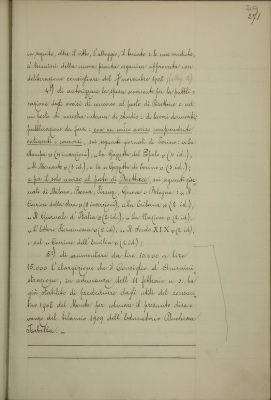 in seguito, oltre il vitto, l'alloggio, il bucato e le cure mediche,
a termini della nuova pianta organica approvata con
deliberazione consigliare del 7 novembre 1908
4º) di autorizzare la spesa occorrente per la pubbli-
cazione degli avvisi di concorso al posto di Direttrice e ad
un posto di maestra interna di studio e di lavori donneschi
pubblicazione da farsi: con un unico avviso comprendente
entrambi i concorsi, sui seguenti giornali di Torino: "La
Stampa" (4 inserzioni), "La Gazzetta del Popolo" (2 id.),
"Il Momento" (2 id.), "La Gazzetta di Torino" (2 id.);
e per il solo avviso al posto di Direttrice: sui seguenti gior-
nali di Milano, Roma, Firenze, Genova e Bologna: "Il
Corriere della Sera" (2 inserzioni), "La Tribuna" (2 id.),
"Il Giornale d'Italia" (2 id.), "La Nazione" (2 id.),
"Il Secolo XIX" (2 id.),
e sul "Corriere dell'Emilia" (2 id.);
5º) di aumentare da lire 10.000 a lire
15.000 l'elargizione che il Consiglio d'Ammini-
strazione, in adunanza dell'11 febbraio u. s., ha
già stabilito di prededurre dagli utili del
1908 del Monte per sanare il presunto disa-
vanzo del bilancio 1909 dell'Educatorio Duchessa
Isabella.